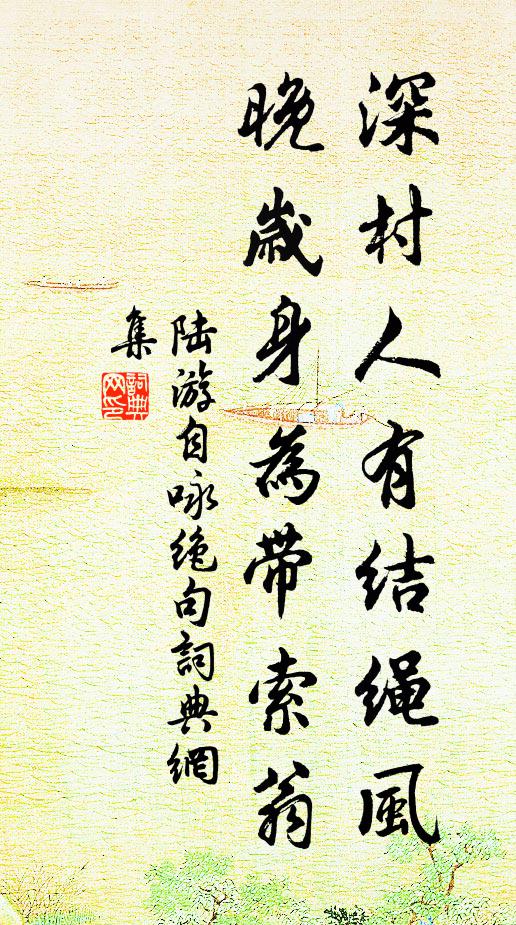 深村人有结绳風
晚歲身為带索翁
陆游自咏绝句詞典網
集
詞典
网印